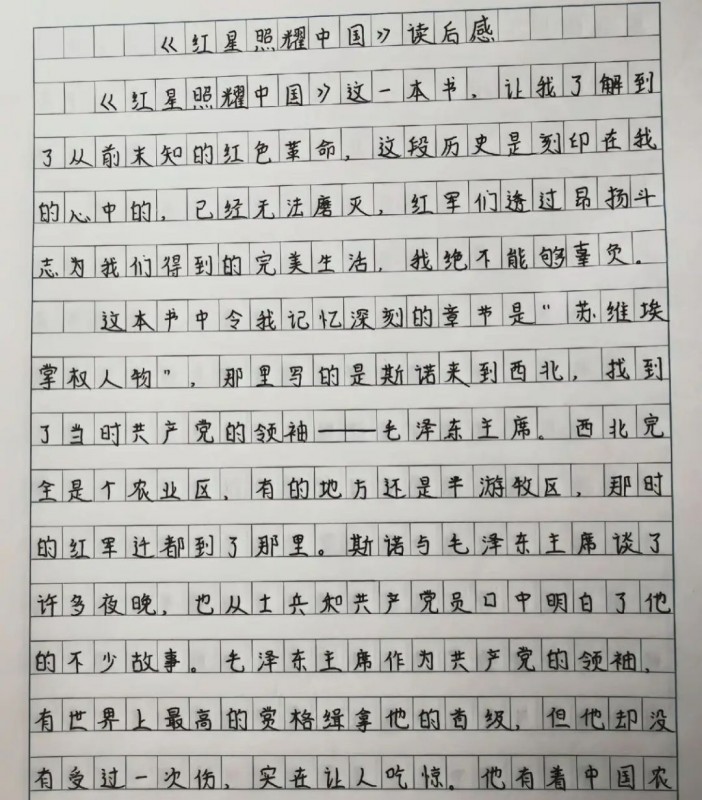 《红星照耀中国》读后感
《红星照耀中国》这一本书，让我了解到
了从前未知的红色革命，这段历史是刻印在我
的心中的，已经无法磨灭，红军们透过昂扬斗
志为我们得到的完美生活，我绝不能够辜负。
这本书中令我记忆深刻的章节是“苏维埃
掌权人物”，那里写的是斯诺来到西北，找到
了当时共产党的领袖——毛泽东主席。西北完
全是个农业区，有的地方还是半游牧区，那时
的红军迁都到了那里。斯诺与毛泽东主席谈了
许多夜晚，也从士兵和共产党员口中明白了他
的不少故事。毛泽东主席作为共产党的领袖，
有世界上最高的赏格缉拿他的首级，但他却没
有受过一次伤，实在让人吃惊。他有着中国农